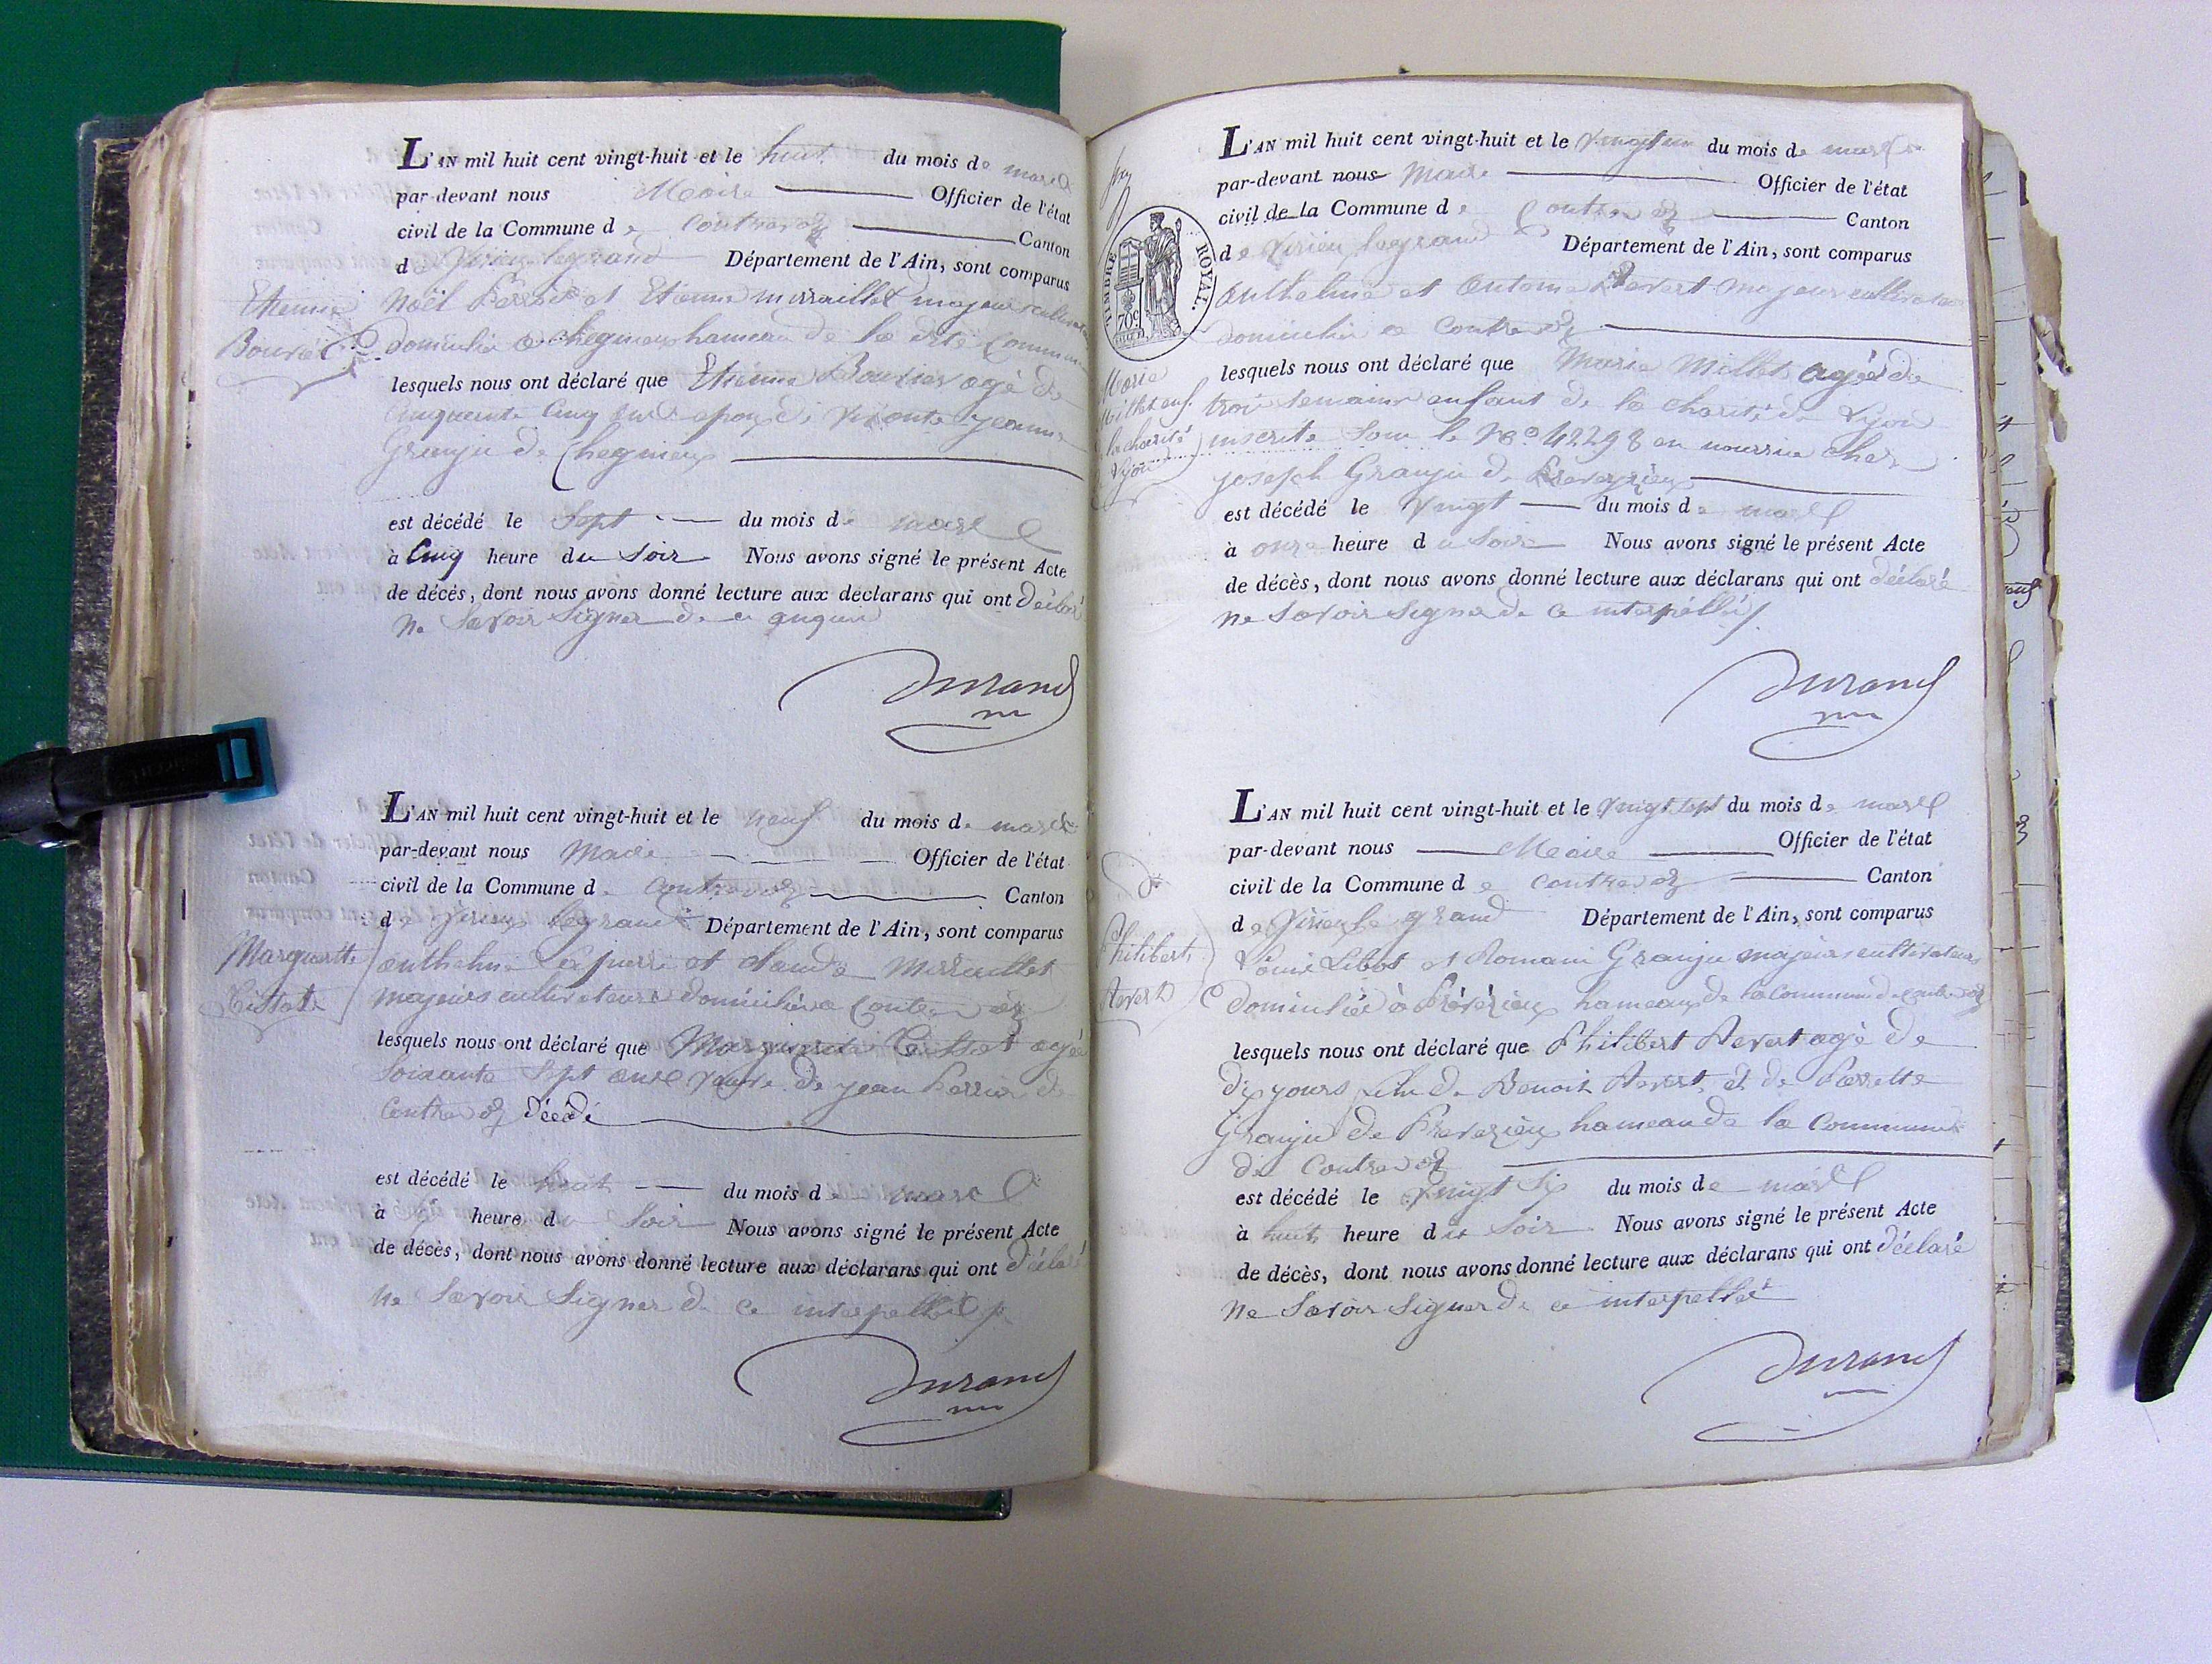 L'AN mil huit cent vingt-huit et le huit du mois de mars
par-devant nous Maire Officier de l'état
civil de la Commune de Contrevoz Canton
de Virieu legrand Département de l'Ain, sont comparus
Etienne
Bouvier
Noël Perrier et Etienne mirraillet majeurs
domicilié a Chegnieux hameau de la dite Commune
lesquels nous ont déclaré que Etienne Bouvier agé de
cinquante Cinq ans epoux de vivante jeanne
Granju de Chegnieux
est décédé le Sept du mois de mars
à Cinq heure du Soir Nous avons signé le présent Acte
de décès, dont nous avons donné lecture aux déclarans qui ont déclaré
ne Savoir Signer de ce
Durand
L'AN mil huit cent vingt-huit et le neuf du mois de mars
par-devant nous Maire Officier de l'état
civil de la Commune de Contrevoz Canton
de Virieu legrand Département de l'Ain, sont comparus
Marguerite
Tissot
anthelme et claude Mirraillet
majeurs cultivateurs domiciliés a Contrevoz
lesquels nous ont déclaré que Marguerite Tissot agée
Soixante Sept ans veuve de jean Perrier de
Contrevoz décédé
est décédé le huit du mois de mars
à heure du Soir Nous avons signé le présent Acte
de décès, dont nous avons donné lecture aux déclarans qui ont déclaré
ne Savoir Signer de ce interpellés
Durand
L'AN mil huit cent vingt-huit et le vingt un du mois de mars
par-devant nous Maire Officier de l'état
civil de la Commune de Contrevoz Canton
de Virieu legrand Département de l'Ain, sont comparus
TIMBRE ROYAL.
70c
Anthelme et Antoine Revert majeurs cultivateurs
domicilié a Contrevoz
Marie
Millet enf.
la charité
Lyon
lesquels nous ont déclaré que Marie Millet agée de
trois Semaines enfant de la charité de Lyon
inscrite Sous le No 42298 en nourrice chez
joseph Granju de Preveyzieux
est décédé le vingt du mois de mars
à onze heure du Soir Nous avons signé le présent Acte
de décès, dont nous avons donné lecture aux déclarans qui ont déclaré
ne Savoir Signer de ce interpellés
Durand
L'AN mil huit cent vingt-huit et le vingt sept du mois de mars
par-devant nous Maire Officier de l'état
civil de la Commune de Contrevoz Canton
de Virieu le grand Département de l'Ain, sont comparus
Philibert
Revert
Louis Libot et Romain Granju majeurs cultivateurs
domiciliés à Prévézieux hameaux de la Commune de Contrevoz
lesquels nous ont déclaré que Philibert Revert agé de
dix jours fils de Benoit Revert et de Pierrette
Granju de Prevezieux hameau de la Commune
de Contrevoz
est décédé le vingt Six du mois de mars
à huit heure du Soir Nous avons signé le présent Acte
de décès, dont nous avons donné lecture aux déclarans qui ont déclaré
ne Savoir Signer de ce interpellés
Durand